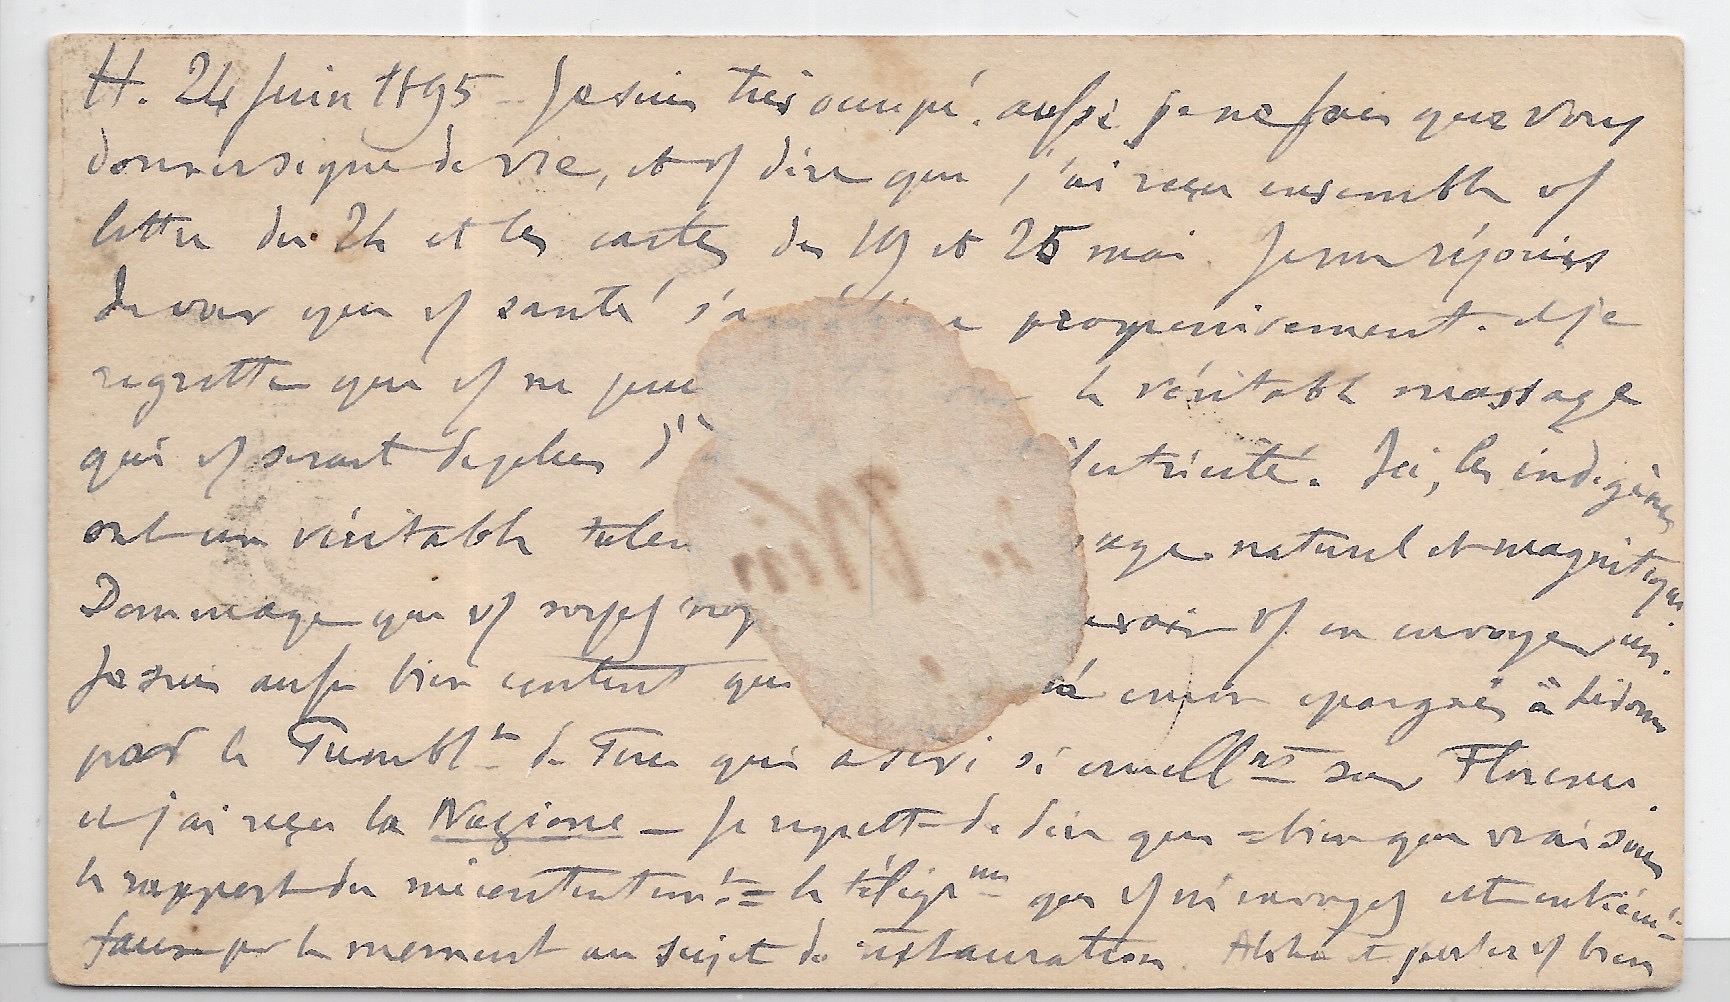 H. 24 juin 1895 – Je suis très occupé. aussi je ne fais que vous
donner signe de vie, et vs dire que j'ai reçu ensemble vs
lettre du 24 et les cartes du 19 et 25 mai. Je me réjouis
de voir que vs santé s'a progressivement. et je
regrette que vs ne le véritable massage
qui vs serait de plus d' Ici, les indigènes
ont un véritable talen naturel et magnétique
Dommage que vs soyez voir vs en envoyer un.
Je suis aussi bien content que épargnés à
par le Tumblt de Terre qui a sévi si cruellnt sur Florence.
et j'ai reçu la Nazione – Je regrette de dire que = bien que vrai sous
le rapport du mécontentemt = le télégrme que vs m'envoyez est entièremt
faux pr le moment au sujet de restauration. Aloha et portez vs bien